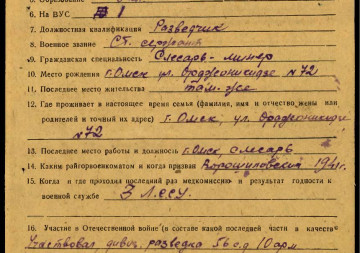 6. На ВУС 1
7. Должностная квалификация Разведчик
8. Военное звание Ст. сержант
9. Гражданская специальность Слесарь-
10. Место рождения г. Омск ул. Орджоникидзе №72
11. Последнее место жительства там-же
12. Где проживает в настоящее время семья (фамилия, имя и отчество жены или
родителей и точный их адрес) г. Омск, ул. Орджоникидзе
№72
13. Последнее место работы и должность г. Омск, слесарь
14. Каким райгорвоенкоматом и когда призван Ворошиловский 1941г.
15. Когда и где проходил последний раз медкомиссию и результат годности к
военной службе
16. Участие в Отечественной войне (в составе какой последней части в качеств
Участвовал, дивиз. разведка 56 с.д. 10 арм.